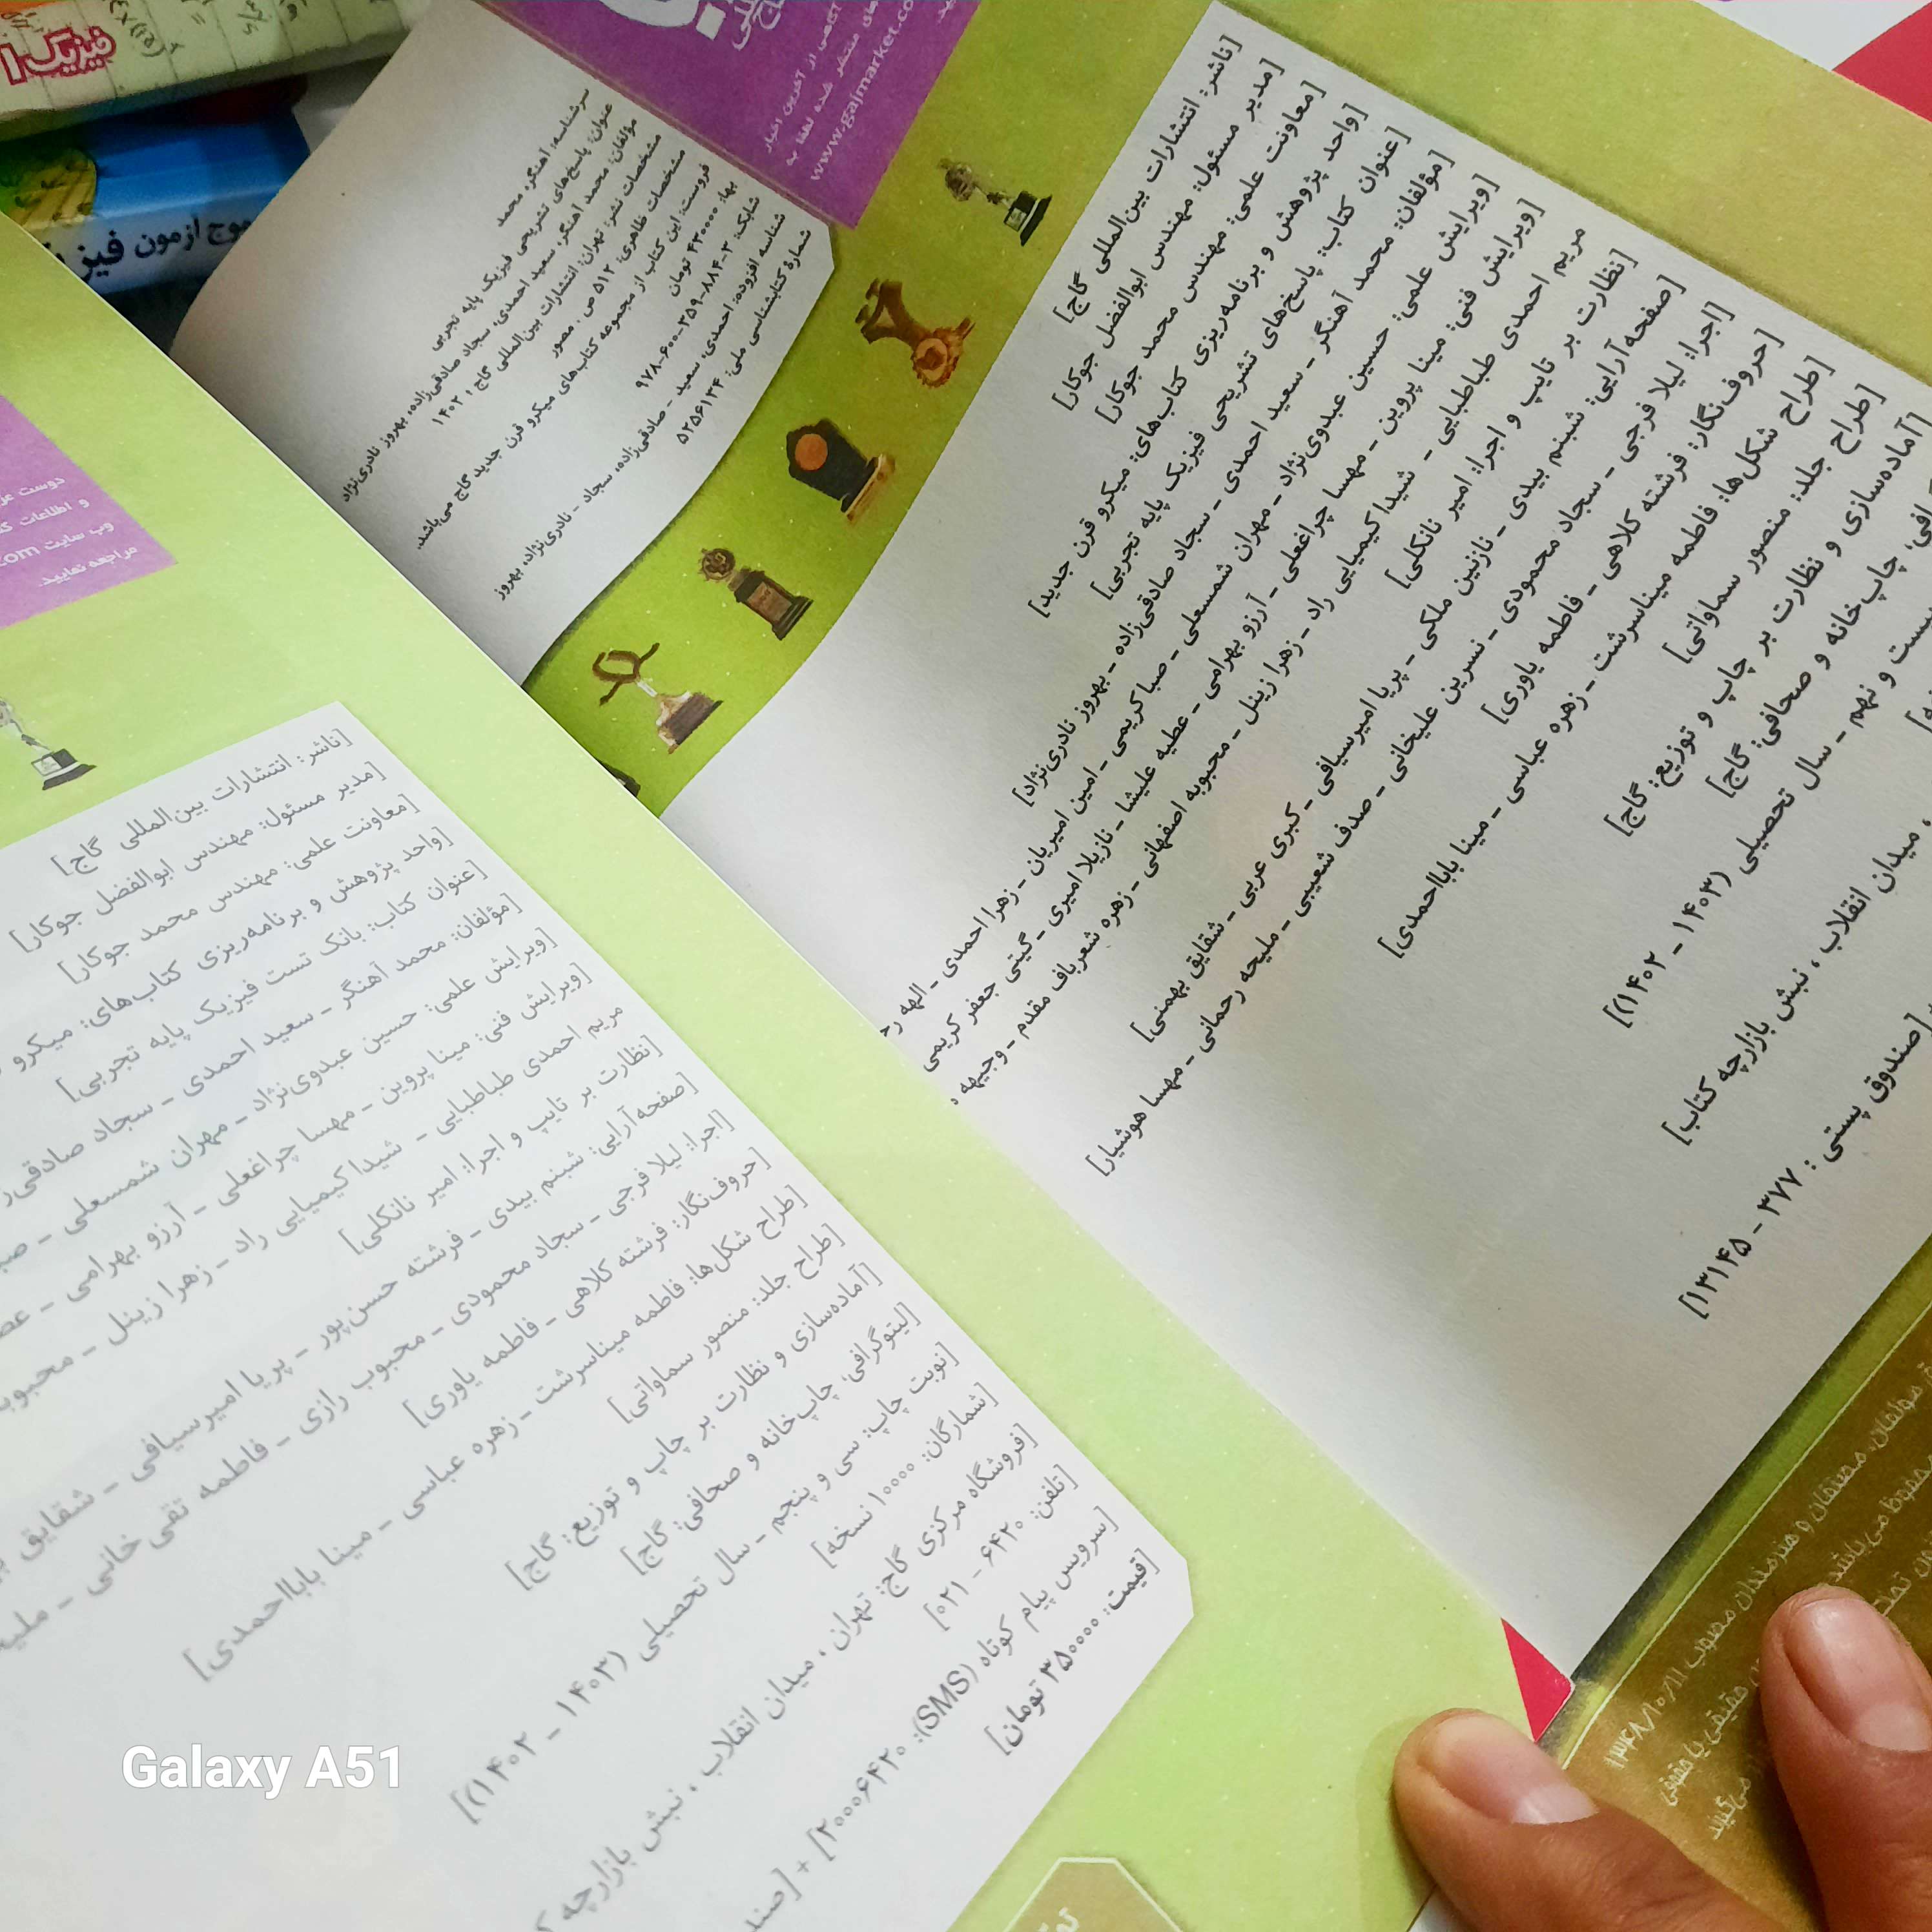 فیزیک ۱
موج آزمون فیز
آگاهی از آخرین اخبار
منتشر شده لطفا به
www.gajmarket.co
سرشناسه: آهنگر، محمد
عنوان: پاسخ‌های تشریحی فیزیک پایه تجربی
مؤلفان: محمد آهنگر، سعید احمدی، سجاد صادقی‌زاده، بهروز نادری‌نژاد
مشخصات نشر: تهران: انتشارات بین‌المللی گاج، ۱۴۰۲
مشخصات ظاهری: ۵۱۲ ص. مصور
فروست: این کتاب از مجموعه کتاب‌های میکرو قرن جدید گاج می‌باشد.
بها: ۴۳۰۰۰۰ تومان
شابک: ۳-۸۸۴-۳۵۹-۶۰۰-۹۷۸
شناسه افزوده: احمدی، سعید - صادقی‌زاده، سجاد - نادری‌نژاد، بهروز
شمارهٔ کتابشناسی ملی: ۵۲۵۶۱۲۴
[ناشر: انتشارات بین‌المللی گاج]
[مدیر مسئول: مهندس ابوالفضل جوکار]
[معاونت علمی: مهندس محمد جوکار]
[واحد پژوهش و برنامه‌ریزی کتاب‌های: میکرو قرن جدید]
[عنوان کتاب: پاسخ‌های تشریحی فیزیک پایه تجربی]
[مؤلفان: محمد آهنگر - سعید احمدی - سجاد صادقی‌زاده - بهروز نادری‌نژاد]
[ویرایش علمی: حسین عبدوی‌نژاد - مهران شمسعلی - صبا کریمی - امین امیریان - زهرا احمدی - الهه
[ویرایش فنی: مینا پروین - مهسا چراغعلی - آرزو بهرامی - عطیه علیشا - نازیلا امیری - گیتی جعفر کریمی
مریم احمدی طباطبایی - شیدا کیمیایی راد - زهرا زینل - محبوبه اصفهانی - زهره شعرباف مقدم - وجیهه
[نظارت بر تایپ و اجرا: امیر نانکلی]
[صفحه‌آرایی: شبنم بیدی - نازنین ملکی - پریا امیرسیافی - کبری عربی - شقایق بهمنی]
[اجرا: لیلا فرجی - سجاد محمودی - نسرین علیخانی - صدف شعیبی - ملیحه رحمانی - مهسا هوشیار]
[حروف‌نگار: فرشته کلاهی - فاطمه یاوری]
[طراح شکل‌ها: فاطمه میناسرشت - زهره عباسی - مینا بابااحمدی]
[طراح جلد: منصور سماواتی]
[آماده‌سازی و نظارت بر چاپ و توزیع: گاج]
چاپ‌خانه و صحافی: گاج]
و نهم - سال تحصیلی (۱۴۰۳ - ۱۴۰۲)]
، میدان انقلاب، نبش بازارچه کتاب]
[صندوق پستی: ۳۷۷ - ۱۳۱۴۵]
دوست
و اطلاعات
وب سایت com
مراجعه نمایید.
[ناشر: انتشارات بین‌المللی گاج]
[مدیر مسئول: مهندس ابوالفضل جوکار]
[معاونت علمی: مهندس محمد جوکار]
[واحد پژوهش و برنامه‌ریزی کتاب‌های: میکرو
[عنوان کتاب: بانک تست فیزیک پایه تجربی]
[مؤلفان: محمد آهنگر - سعید احمدی - سجاد
[ویرایش علمی: حسین عبدوی‌نژاد - مهران شمسعلی -
[ویرایش فنی: مینا پروین - مهسا چراغعلی - آرزو بهرامی -
مریم احمدی طباطبایی - شیدا کیمیایی راد - زهرا زینل -
[نظارت بر تایپ و اجرا: امیر نانکلی]
[صفحه‌آرایی: شبنم بیدی - فرشته حسن‌پور - پریا امیرسیافی - شقایق
[اجرا: لیلا فرجی - سجاد محمودی - محبوب رازی - فاطمه تقی‌خانی -
[حروف‌نگار: فرشته کلاهی - فاطمه یاوری]
[طراح شکل‌ها: فاطمه میناسرشت - زهره عباسی - مینا بابااحمدی]
[طراح جلد: منصور سماواتی]
[آماده‌سازی و نظارت بر چاپ و توزیع: گاج]
[لیتوگرافی، چاپ‌خانه و صحافی: گاج]
[نوبت چاپ: سی و پنجم - سال تحصیلی (۱۴۰۳ - ۱۴۰۲)]
[شمارگان: ۱۰۰۰۰ نسخه]
[فروشگاه مرکزی گاج: تهران، میدان انقلاب، نبش بازارچه
[تلفن: ۶۴۲۰ - ۰۲۱]
[سرویس پیام کوتاه (SMS): ۲۰۰۰۶۴۲۰] +
[قیمت: ۳۵۰۰۰۰ تومان]
مؤلفان، مصنفان و هنرمندان مصوب ۱۳۴۸/۱۰/۱۱
محفوظ می‌باشد
حقیقی یا حقوقی
Galaxy A51